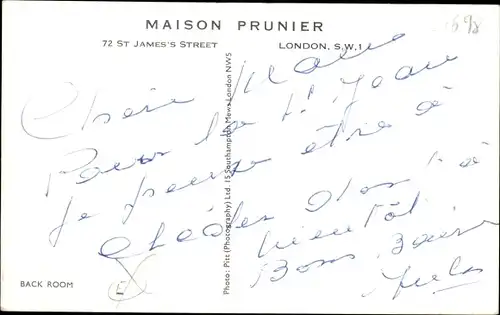 MAISON PRUNIER
72 ST JAMES'S STREET LONDON, S.W.1
698
Chère
Pour la St Jean
je pense être à
à
bientôt.
Bons Baisers
Photo: Pitt (Photography) Ltd. 15 Southampton Mews London NW5
BACK ROOM